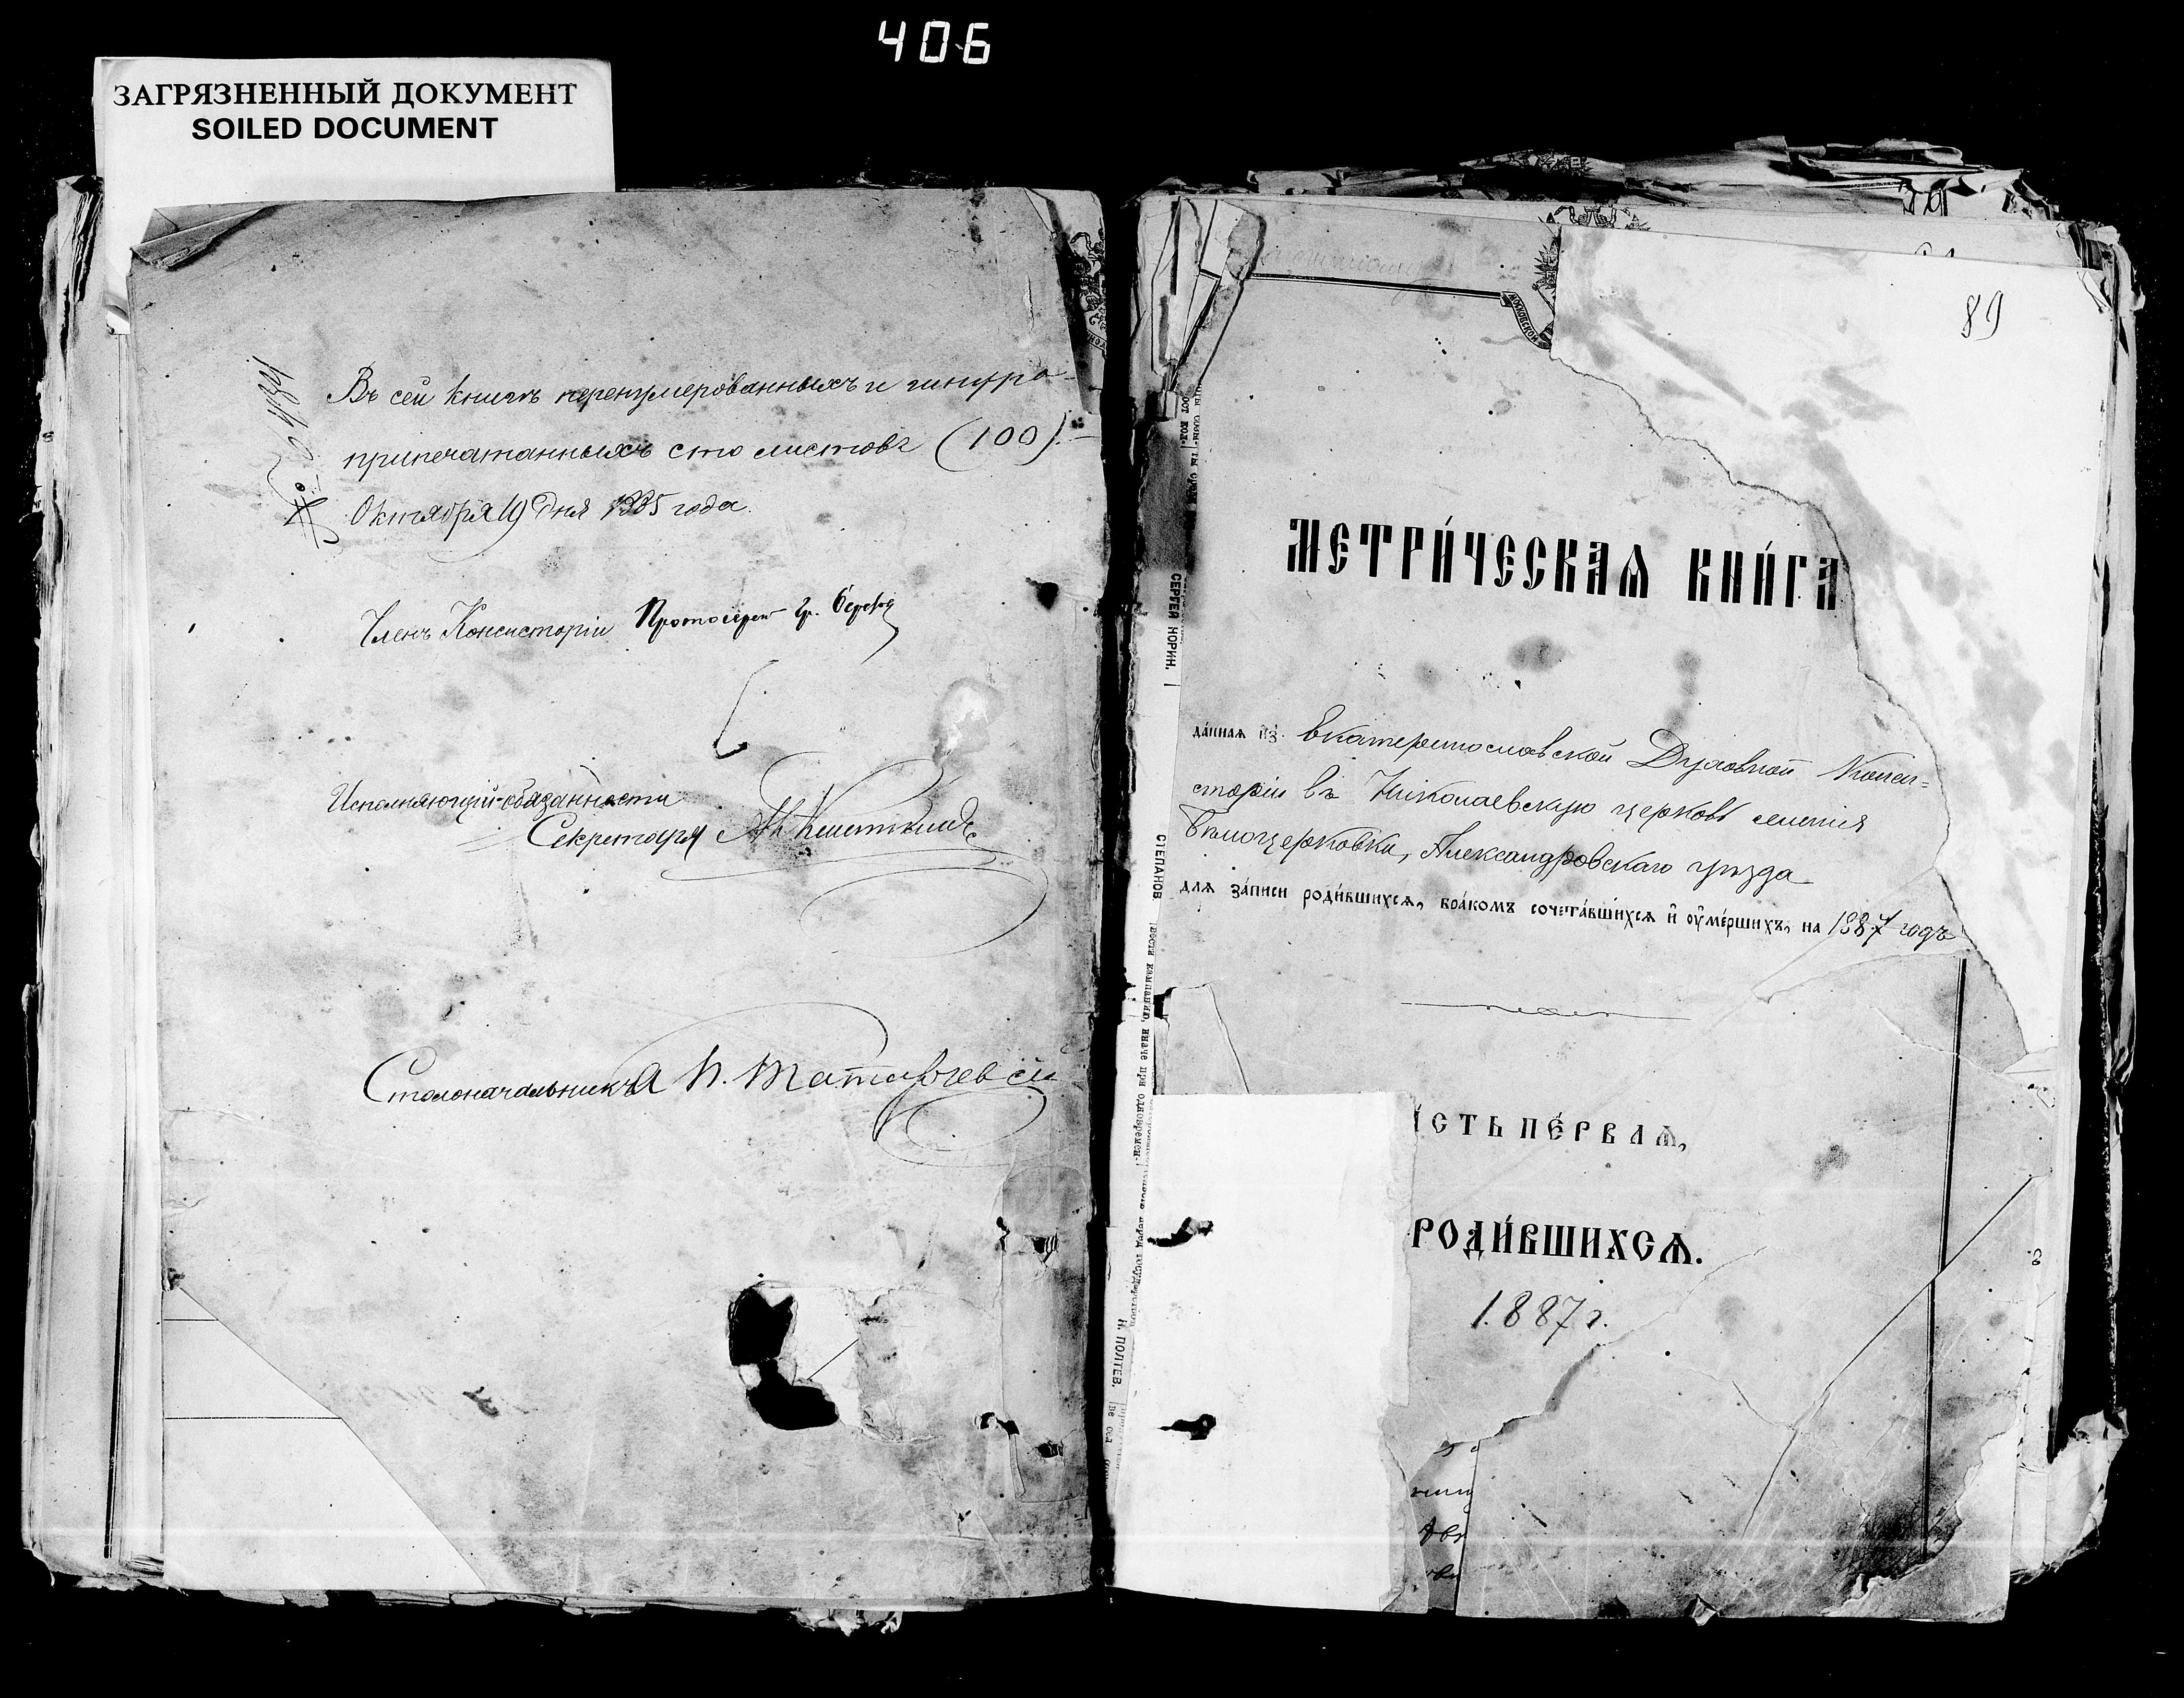 406
ЗАГРЯЗНЕННЫЙ ДОКУМЕНТ
SOILED DOCUMENT
Въ сей книгѣ перенумерованныхъ и шнуро-
припечатанныхъ сто листовъ (100).
Октября 19 дня 1885 года.
Членъ Консисторіи Протоіерей Гр.
Исполняющій обязанности
Секретаря
Столоначальникъ
89
МОСКОВСКОЙ
МЕТРИ́ЧЕСКАѦ КНИ́ГА
да́ннаѧ изъ Екатеринославской Духовной Конси-
сторіи въ Николаевскую церковь селенія
Бѣлоцерковки, Александровскаго уѣзда
длѧ за́писи роди́вшихсѧ, бра́комъ сочета́вшихсѧ и҆ ѹ҆ме́ршихъ, на 1887 годъ
СТЬ ПЕ́РВАѦ,
РОДИ́ВШИХСѦ.
1887 г.
СЕРГЕЙ НОРИН.
СТЕПАНОВ
Н. ПОЛТЕВ.